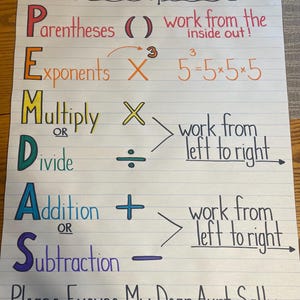 Parentheses ( ) work from the
inside out!
Exponents X³ 5³=5×5×5
Multiply ×
OR
work from
left to right
Divide ÷
Addition +
OR
work from
left to right
Subtraction −
Please Excuse My Dear Aunt Sally